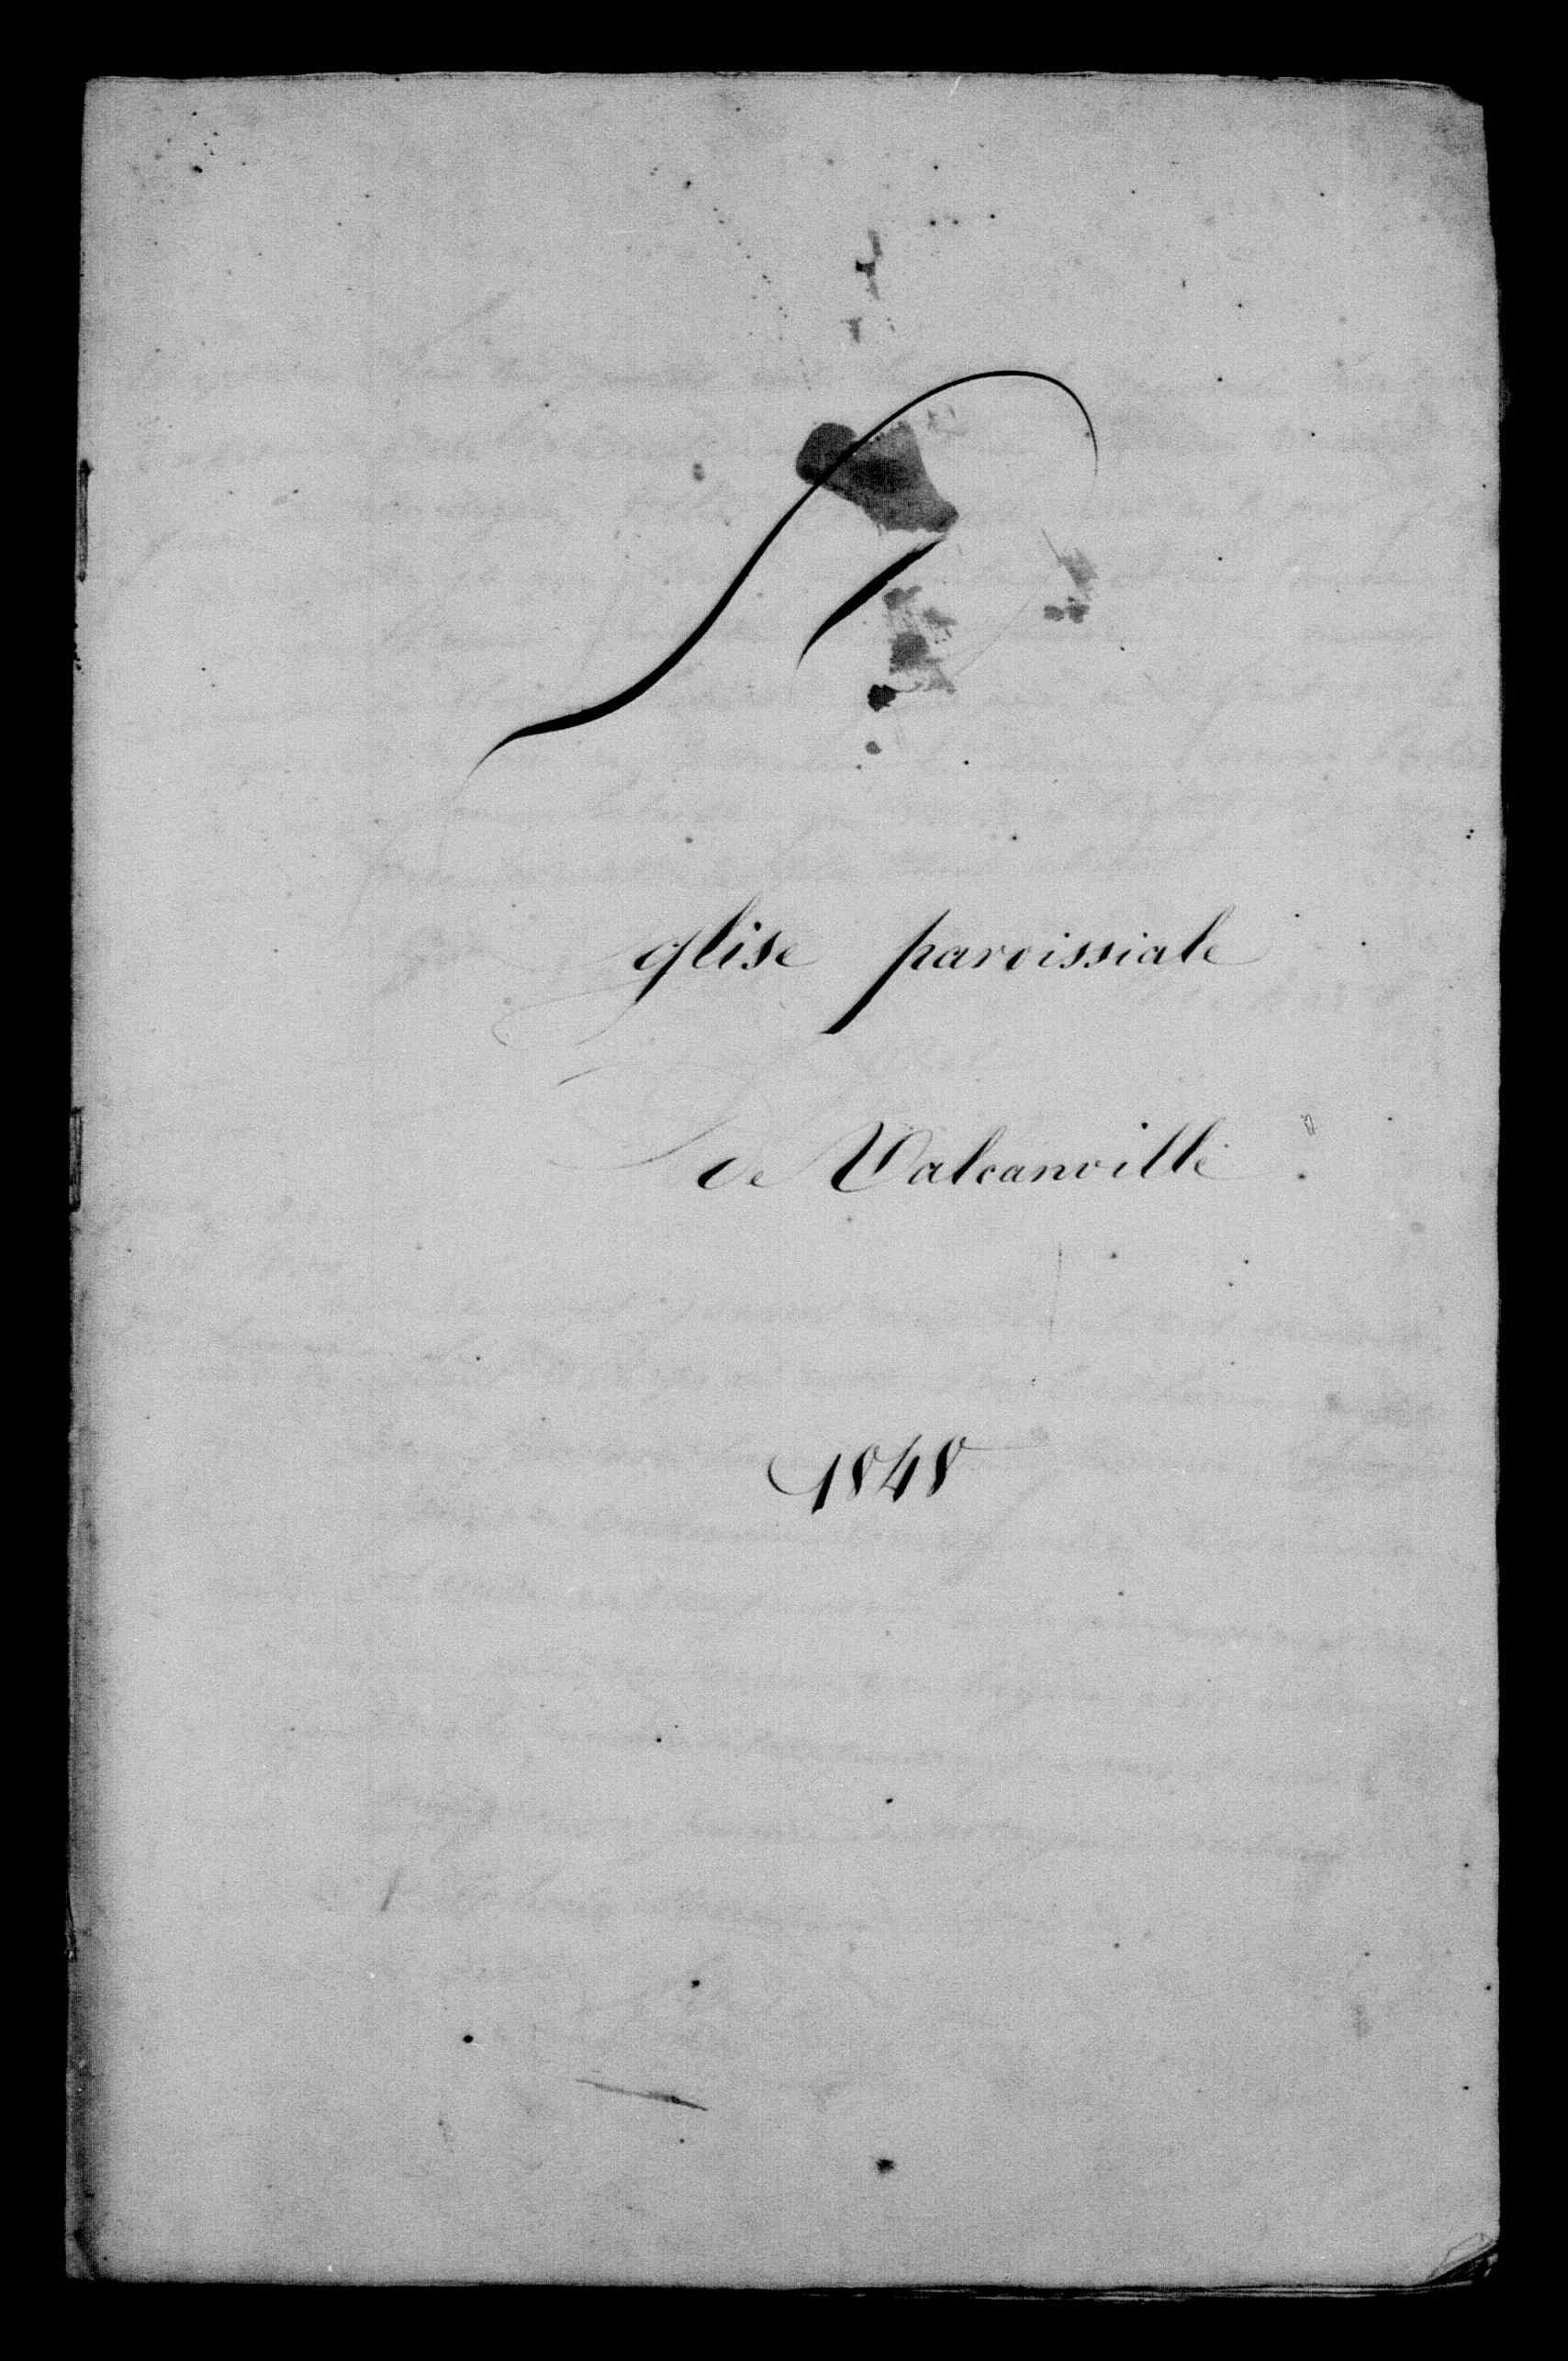 Eglise paroissiale
de Valcanville
1848